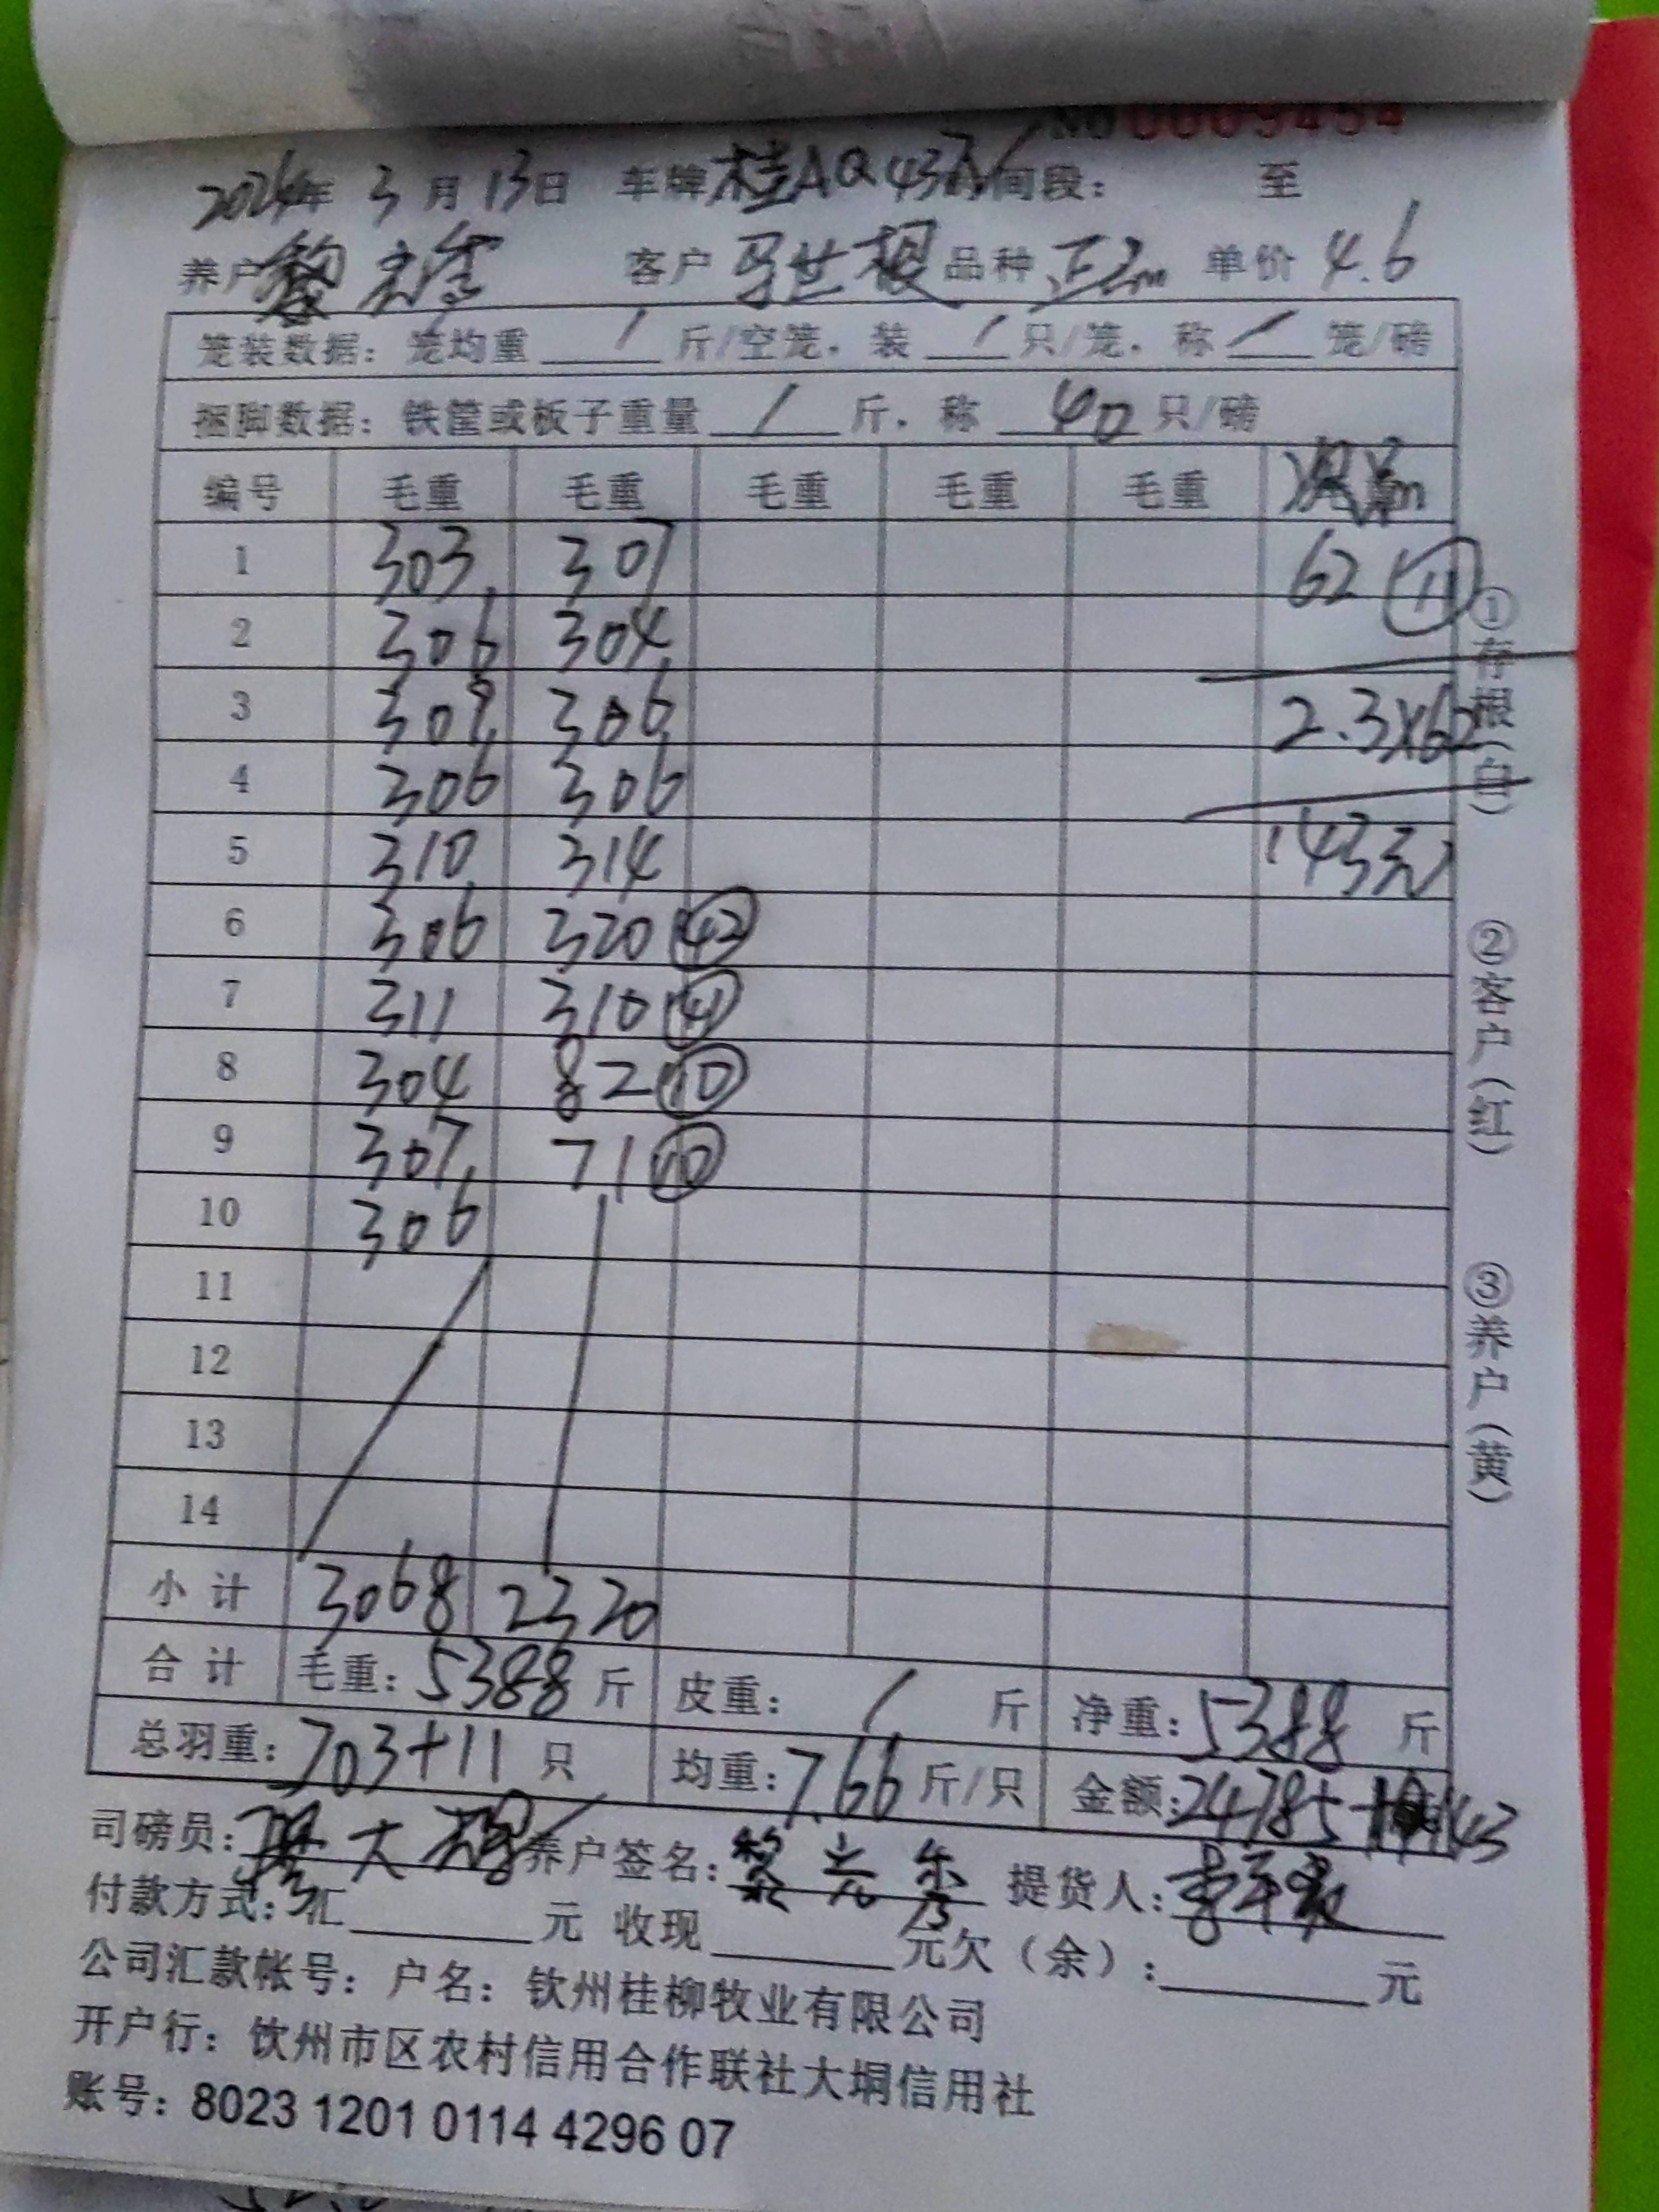 No 0009454
2024年 3 月 13日 车牌 桂AQ43 时间段: 至
养户 黎 客户 马世根 品种 正 单价 4.6
笼装数据: 笼均重 / 斤/空笼, 装 / 只/笼, 称 / 笼/磅
捆脚数据: 铁筐或板子重量 / 斤, 称 40 只/磅
编号 毛重 毛重 毛重 毛重 毛重
1 303 307 62 (11)
2 306 304
3 309 306 2.3×62
4 306 306
5 310 314 143元
6 306 320 (42)
7 311 310 (41)
8 304 82 (10)
9 307 71 (10)
10 306
11
12
13
14
小计 3068 2320
合计 毛重: 5388 斤 皮重: / 斤 净重: 5388 斤
总羽重: 703+11 只 均重: 7.66 斤/只 金额: 24785+143
司磅员: 大 养户签名: 黎 提货人: 李
付款方式: 汇 元 收现 元欠(余): 元
公司汇款帐号: 户名: 钦州桂柳牧业有限公司
开户行: 钦州市区农村信用合作联社大垌信用社
账号: 8023 1201 0114 4296 07
①存根(白) ②客户(红) ③养户(黄)